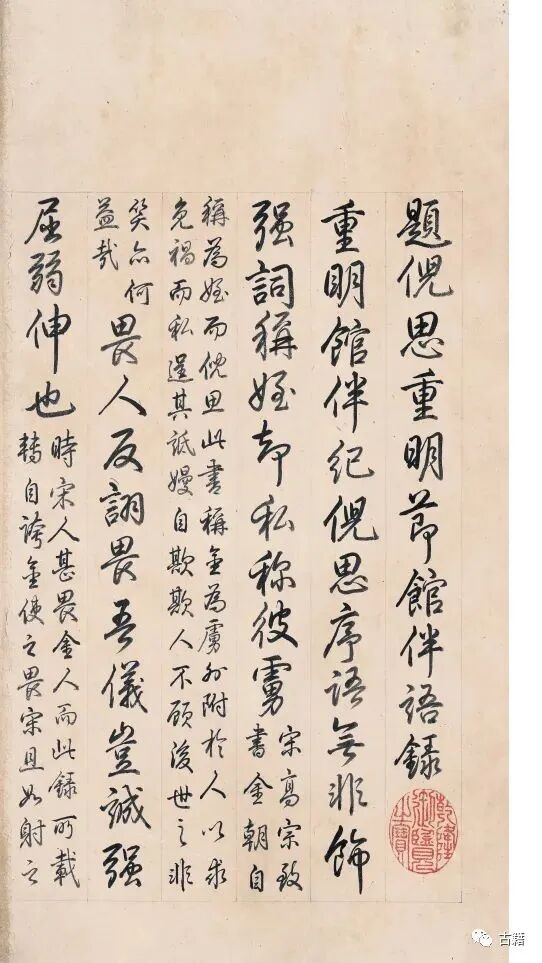 題倪思重明節館伴語録
乾隆御覽之寶
重明館伴紀倪思序語無非飾
强詞稱姪却私称彼虜
宋高宗致
書金朝自
稱為姪而倪思此書稱金為虜外附於人以求
免禍而私逞其詆嫚自欺欺人不顧後世之非
笑亦何
益哉
畏人反詡畏吾儀豈誠强
屈弱伸也
時宋人甚畏金人而此録所載
轉自誇金使之畏宋且如射之
古籍